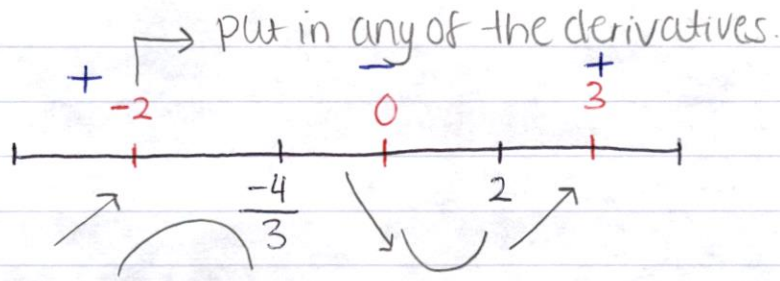 put in any of the derivatives.
+ − +
-2 0 3
-4/3 2